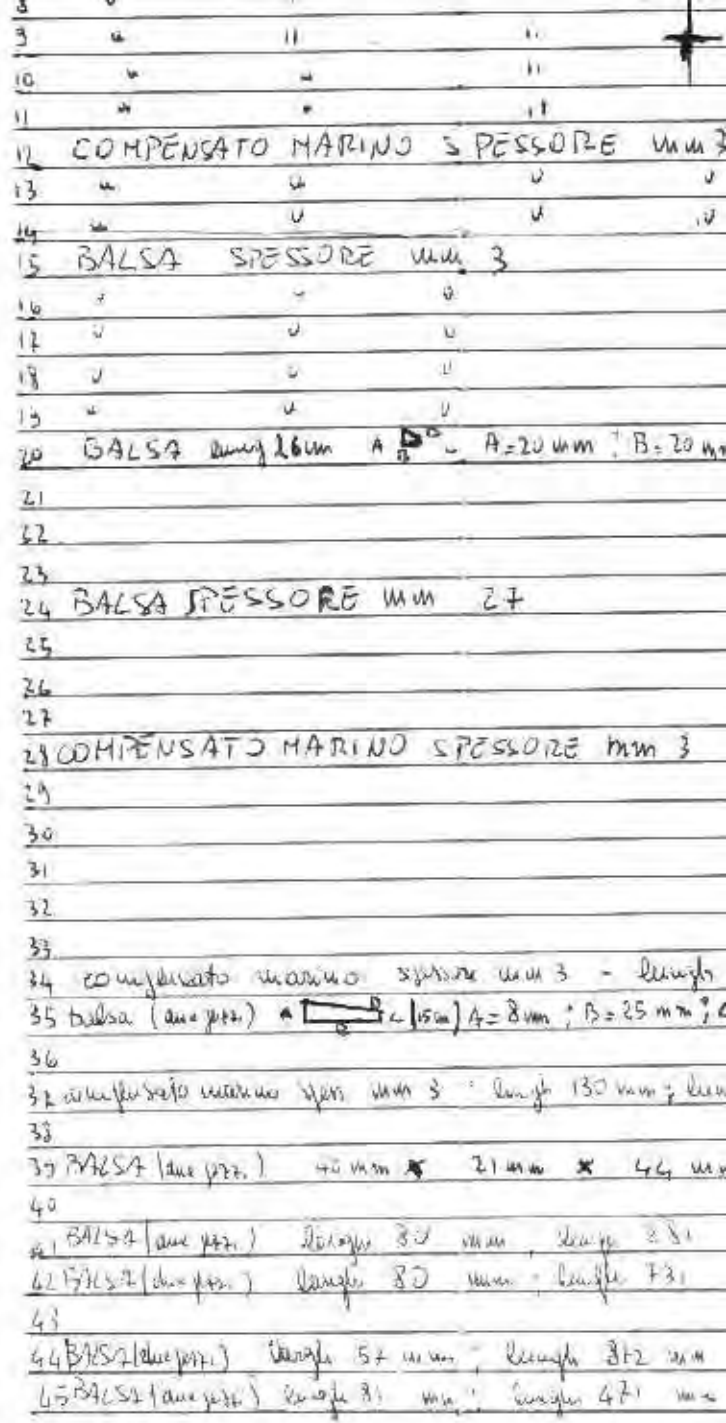 8
9 " " "
10 " " "
11 " " "
12 COMPENSATO MARINO SPESSORE mm 3
13 " " " "
14 " " " "
15 BALSA SPESSORE mm 3
16 " " "
17 " " "
18 " " "
19 " " "
20 BALSA lung 26cm A B A=20 mm ; B=20 mm
21
22
23
24 BALSA SPESSORE mm 27
25
26
27
28 COMPENSATO MARINO SPESSORE mm 3
29
30
31
32
33
34 compensato marino spessore mm 3 - lungh
35 balsa (due pzz.) A B [15cm] A=8mm ; B=25 mm ;
36
37 compensato marino spess mm 3 : lungh 130 mm ;
38
39 BALSA (due pzz.) 40 mm × 21 mm × 44 mm
40
41 BALSA (due pzz.) largh 80 mm , lungh
42 BALSA (due pzz.) largh 80 mm - lungh 731
43
44 BALSA (due pzz.) largh 57 mm ; lungh 872 mm
45 BALSA (due pzz.) largh 81 mm ; lungh 471 mm